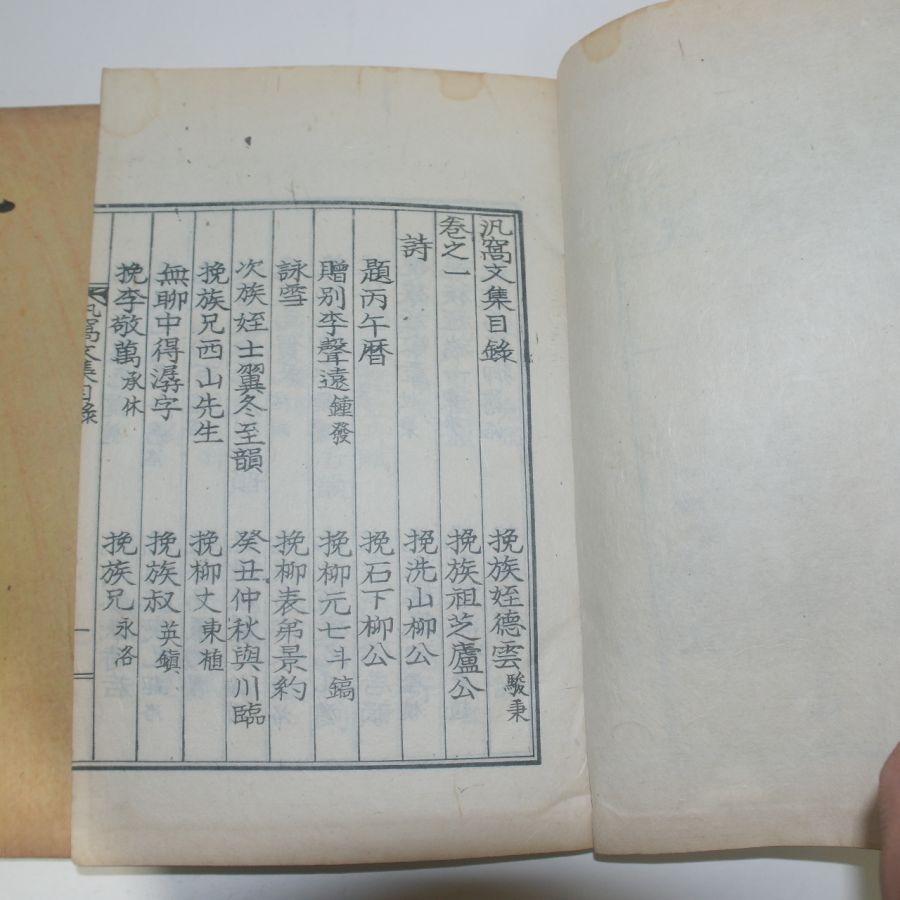 汎窩文集目錄 挽族姪德雲駿秉
卷之一 挽族祖芝廬公
詩 挽洗山柳公
題丙午暦 挽石下柳公
贈別李聲遠鍾發 挽柳元七斗鎬
詠雪 挽柳表弟景約
次族姪士翼冬至韻 癸丑仲秋與川臨
挽族兄西山先生 挽柳丈東植
無聊中得潺字 挽族叔英鎭
挽李敬萬承休 挽族兄永洛
汎窩文集目錄 一